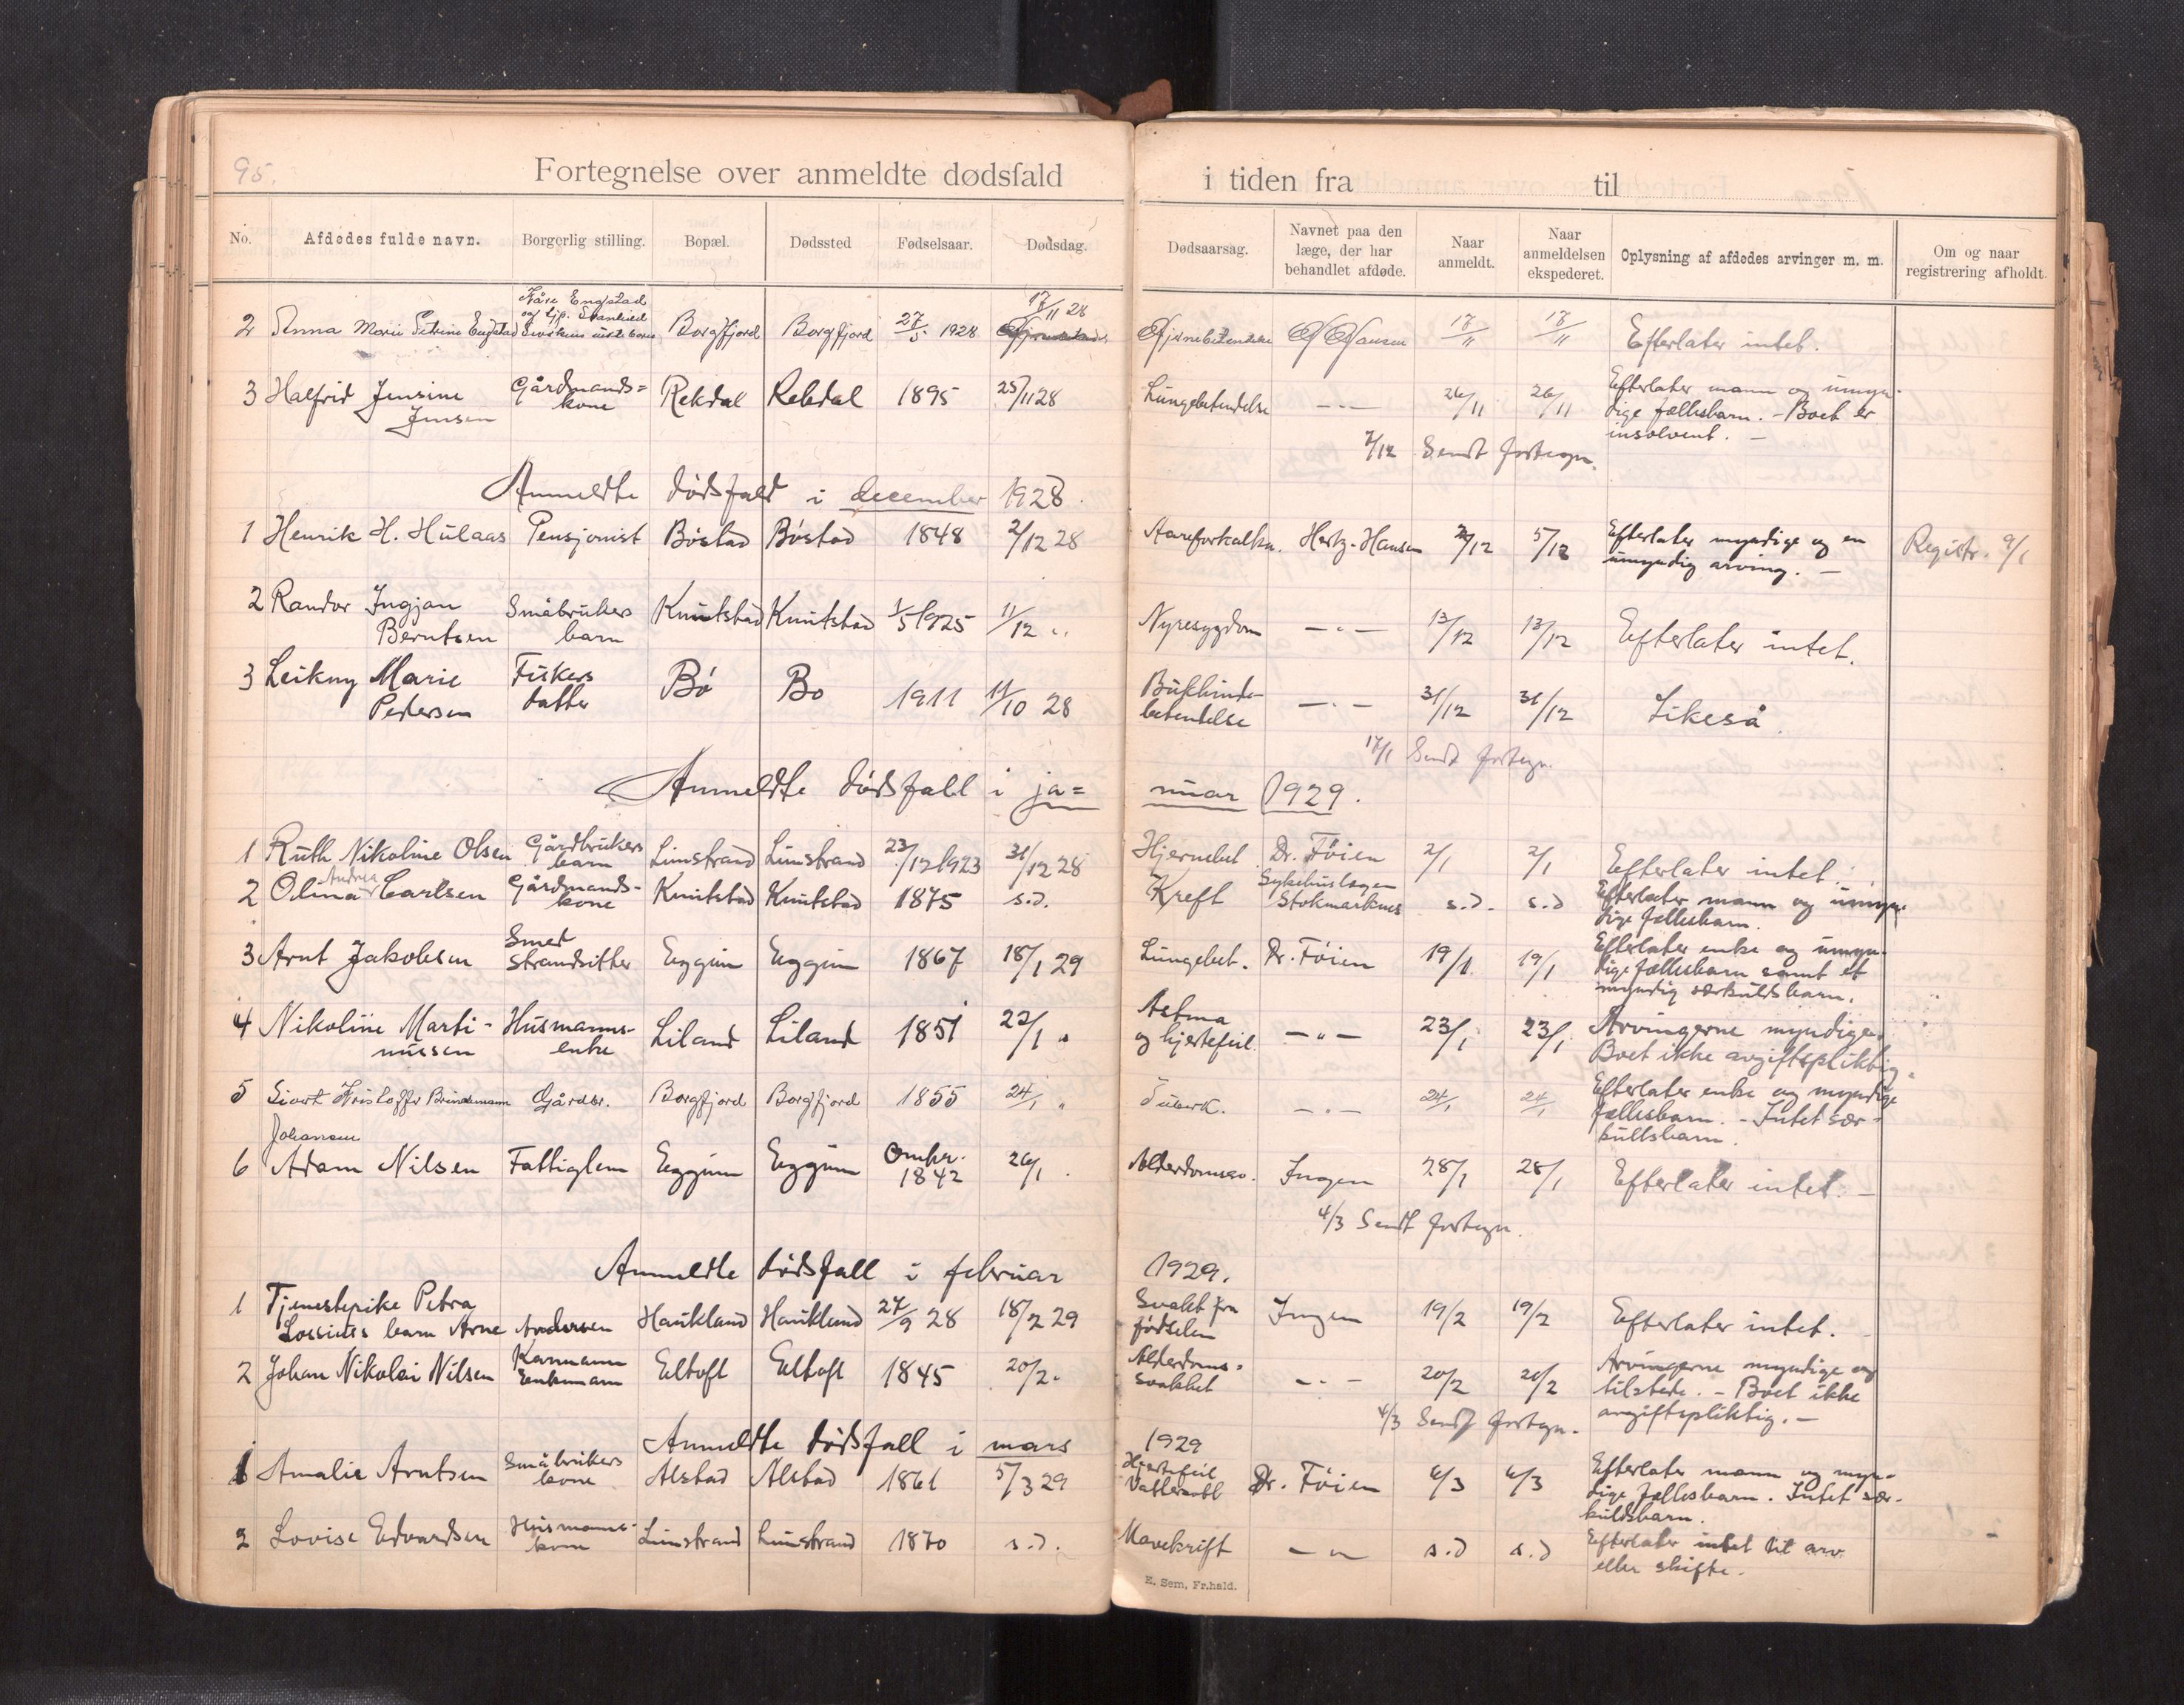 95.
Fortegnelse over anmeldte dødsfald i tiden fra til
No. Afdødes fulde navn. Borgerlig stilling. Bopæl. Dødssted Fødselsaar. Dødsdag. Dødsaarsag. Navnet paa den læge, der har behandlet afdøde. Naar anmeldt. Naar anmeldelsen ekspederet. Oplysning af afdødes arvinger m. m. Om og naar registrering afholdt.
2 Anna Marie Petrine Engstad Kåre Engstad og Borgfjord Borgfjord 27/5 1928 17/11 28 Hjernebetendelse Hansen 17/11 17/11 Efterlater intet.
3 Halfrid Jensine Jensen Gårdmands= kone Rekdal Rekdal 1895 25/11 28 Lungebetendelse -"- 26/11 26/11 Efterlater mann og umyn- dige fællesbarn. - Boet er insolvent. -
7/12 Sendt fortegn.
Anmeldte dødsfald i december 1928.
1 Henrik H. Hulaas Pensjonist Bøstad Bøstad 1848 2/12 28 Aareforkalkn. Hertz-Hansen /12 5/12 Efterlater myndige og en umyndig arving. - Registr. 9/1
2 Randor Ingjan Berntsen Småbrukers barn Knutstad Knutstad 1/5 1925 11/12 " Nyresygdom -"- 13/12 13/12 Efterlater intet.
3 Leikny Marie Pedersen Fiskers datter Bø Bø 1911 11/10 28 Bukhinde- betendelse -"- 31/12 31/12 Likeså.
17/1 Sendt fortegn.
Anmeldte dødsfall i ja= nuar 1929.
1 Ruth Nikoline Olsen Gårdbrukers barn Limstrand Limstrand 23/12 1923 31/12 28 Hjernebet. Dr. Føien 2/1 2/1 Efterlater intet.
2 Olina Andrea Carlsen Gårdmands- kone Knutstad Knutstad 1875 s.d. Kreft Sykehuslægen Stokmarknes s.d. s.d Efterlater mann og umyn- dige fællesbarn.
3 Arnt Jakobsen Smed strandsitter Eggum Eggum 1867 18/1 29 Lungebet. Dr. Føien 19/1 19/1 Efterlater enke og umyn- dige fællesbarn samt et myndig særkuldsbarn.
4 Nikoline Marti- nussen Husmanns- enke Liland Liland 1851 22/1 " Astma og hjertefeil. -"- 23/1 23/1 Arvingerne myndige. Boet ikke avgiftspliktig.
5 Sivert Kristoffer Brindemann Johansen Gårdbr. Borgfjord Borgfjord 1855 24/1 " Tuberk. -"- 24/1 24/1 Efterlater enke og myndige fællesbarn. - Intet sær- kullsbarn.
6 Adam Nilsen Fattiglem Eggum Eggum Omkr. 1842 26/1 Alderdomssv. Ingen 28/1 28/1 Efterlater intet. -
4/3 Sendt fortegn.
Anmeldte dødsfall i februar 1929.
1 Tjenestepike Petra Lossius barn Arne Andersen Haukland Haukland 27/9 28 18/2 29 Svakt fra fødselen Ingen 19/2 19/2 Efterlater intet.
2 Johan Nikolai Nilsen Kårmann Enkemann Eltoft Eltoft 1845 20/2 " Alderdoms= svakhet -"- 20/2 20/2 Arvingerne myndige og tilstede. - Boet ikke avgiftspliktig. -
4/3 Sendt fortegn.
Anmeldte dødsfall i mars 1929
1 Amalie Arntsen Småbrukers kone Alstad Alstad 1861 5/3 29 Hjertefeil Vattersott Dr. Føien 6/3 6/3 Efterlater mann og myn- dige fællesbarn. Intet sær- kuldsbarn.
2 Lovise Edvardsen Husmanns- kone Limstrand Limstrand 1870 s.d. Mavekreft -"- s.d s.d Efterlater intet til arv eller skifte.
E. Sem, Fr.hald.